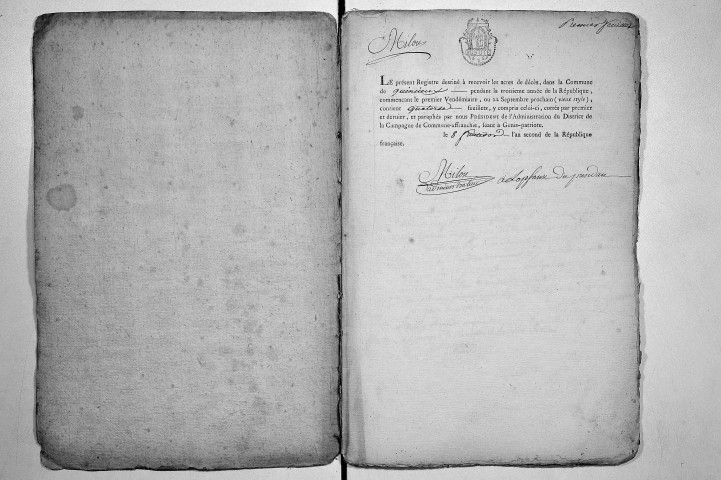 Premier feuillet
Milou
LE présent Registre destiné à recevoir les actes de décès, dans la Commune
de quincieux pendant la troisieme année de la République,
commençant le premier Vendémiaire, ou 22 Septembre prochain (vieux style),
contient quatorze feuillets, y compris celui-ci, cottés par premier
et dernier, et paraphés par nous Président de l'Administration du District de
la Campagne de Commune-affranchie, séant à Genis-patriote.
le 8 fructidor l'an second de la République
française.
Milou
administrateur en l'absence du président